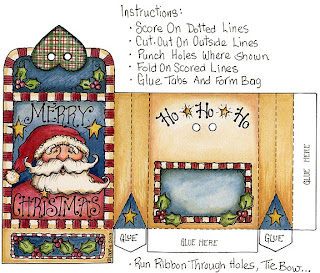 Instructions:
· Score On Dotted Lines
· Cut-Out On Outside Lines
· Punch Holes Where Shown
· Fold On Scored Lines
· Glue Tabs And Form Bag
MERRY
CHRISTMAS
Ho Ho Ho
GLUE HERE
GLUE
GLUE HERE
GLUE
· Run Ribbon Through Holes, Tie Bow...